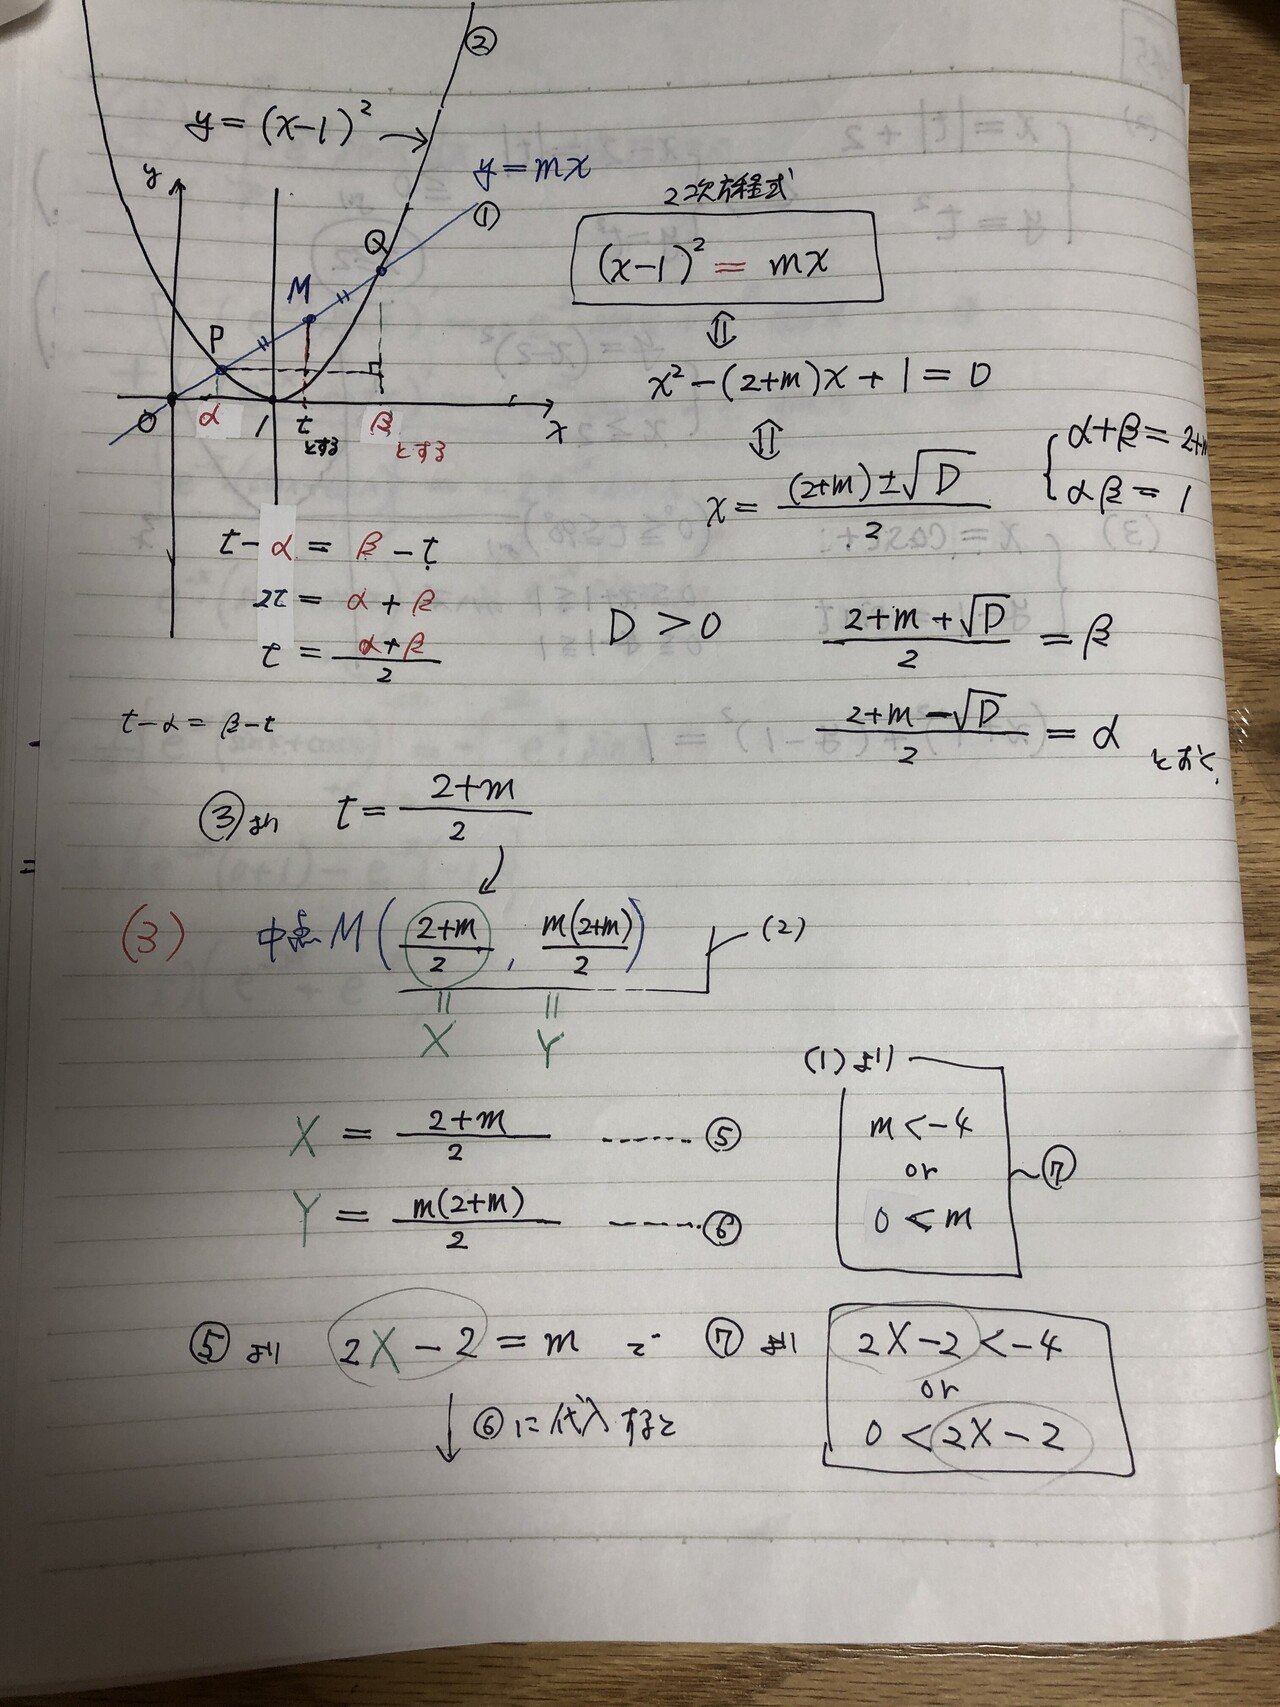 ②
y = (x-1)²
y = mx
①
y
Q
M
P
O
α
1
t
とする
β
とする
x
2次方程式
(x-1)² = mx
⇕
x² - (2+m)x + 1 = 0
⇕
x = (2+m) ± √D / 2
α+β = 2+m
αβ = 1
t - α = β - t
2t = α + β
t = α+β / 2
D > 0
2+m+√D / 2 = β
2+m-√D / 2 = α とおく
t-α = β-t
③より t = 2+m / 2
(3) 中点 M ( 2+m / 2 , m(2+m) / 2 ) (2)
= X = Y
(1)より
X = 2+m / 2 ------ ⑤
Y = m(2+m) / 2 ------ ⑥
m < -4
or
0 < m
⑦
⑤より 2X - 2 = m で ⑦より
2X - 2 < -4
or
0 < 2X - 2
↓ ⑥に代入すると